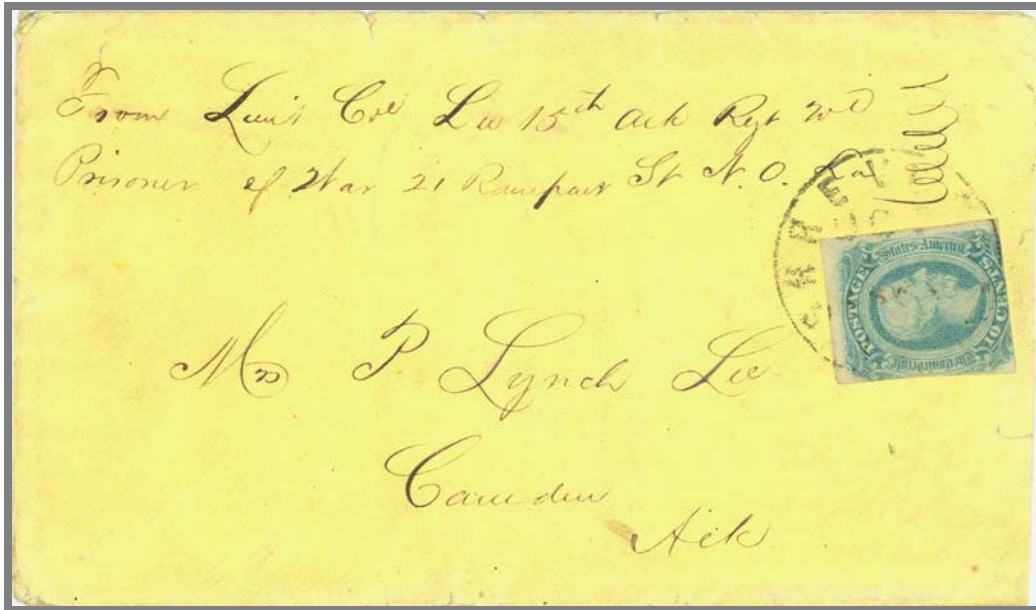 From Lieut Col Lee 15th Ark Regt
Prisoner of War 21 Rampart St N.O. La
SHREV
States America
POSTAGE
10 CENTS
The Confederate
Mrs P. Lynch Lee
Camden
Ark